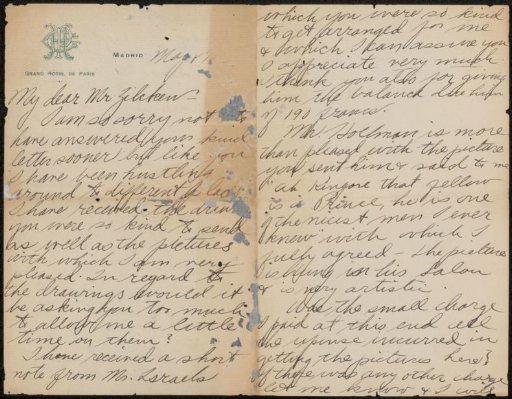 Madrid May
Grand Hotel de Paris
My dear Mr
I am so sorry not to
have answered your kind
letter sooner but like you
I have been hustling
around to different
I have received the
you were so kind to send
as well as the pictures
with which I am very
pleased. In regard to
the drawings would it
be asking you too much
to allow me a little
time on them?
I have received a short
note from Mr. Israels
which you were so kind
to get arranged for me
& which I can assure you
I appreciate very much
I thank you also for giving
him the balance due him
of 190 francs.
Mr. is more
than pleased with the picture
you sent him & said to me
"ah Kingore that fellow
is a Prince, he is one
of the nicest men I ever
knew with which I
fully agreed. The picture
is hung in his Salon
& is very artistic.
Was the small charge
I paid at this end all
the expense incurred in
getting the pictures here?
If there was any other charge
let me know & I will